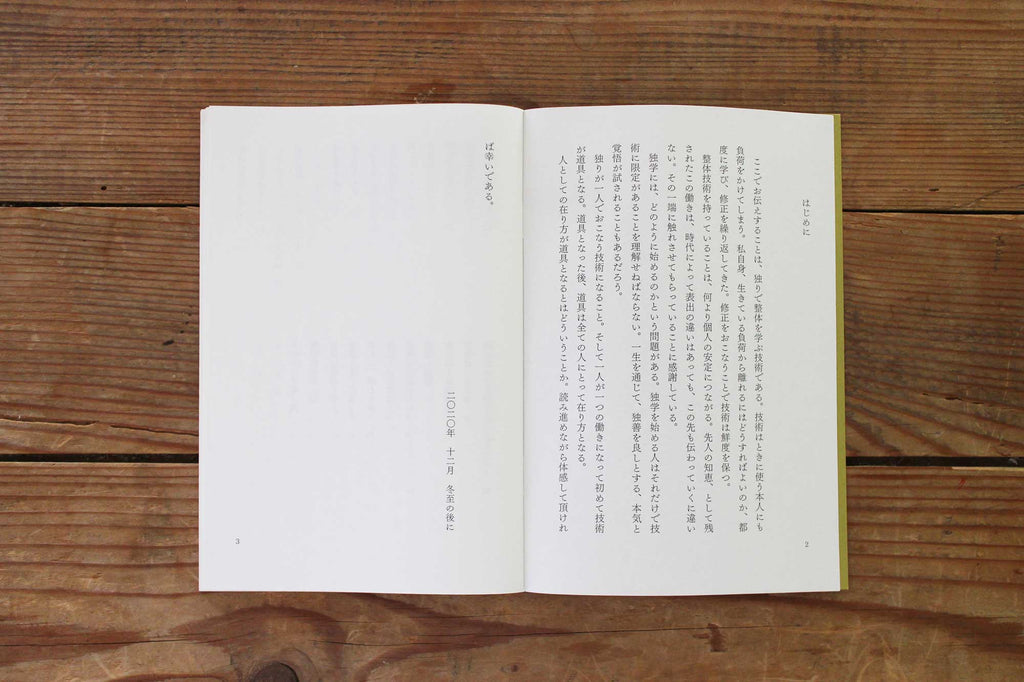 はじめに
ここでお伝えすることは、独りで整体を学ぶ技術である。技術はときに使う本人にも
負荷をかけてしまう。私自身、生きている負荷から離れるにはどうすればよいのか、都
度に学び、修正を繰り返してきた。修正をおこなうことで技術は鮮度を保つ。
整体技術を持っていることは、何より個人の安定につながる。先人の知恵、として残
されたこの働きは、時代によって表出の違いはあっても、この先も伝わっていくに違い
ない。その一端に触れさせてもらっていることに感謝している。
独学には、どのように始めるのかという問題がある。独学を始める人はそれだけで技
術に限定があることを理解せねばならない。一生を通じて、独善を良しとする、本気と
覚悟が試されることもあるだろう。
独りが一人でおこなう技術になること。そして一人が一つの働きになって初めて技術
が道具となる。道具となった後、道具は全ての人にとって在り方となる。
人としての在り方が道具となるとはどういうことか。読み進めながら体感して頂けれ
2
ば幸いである。
二〇二〇年 十二月 冬至の後に
3